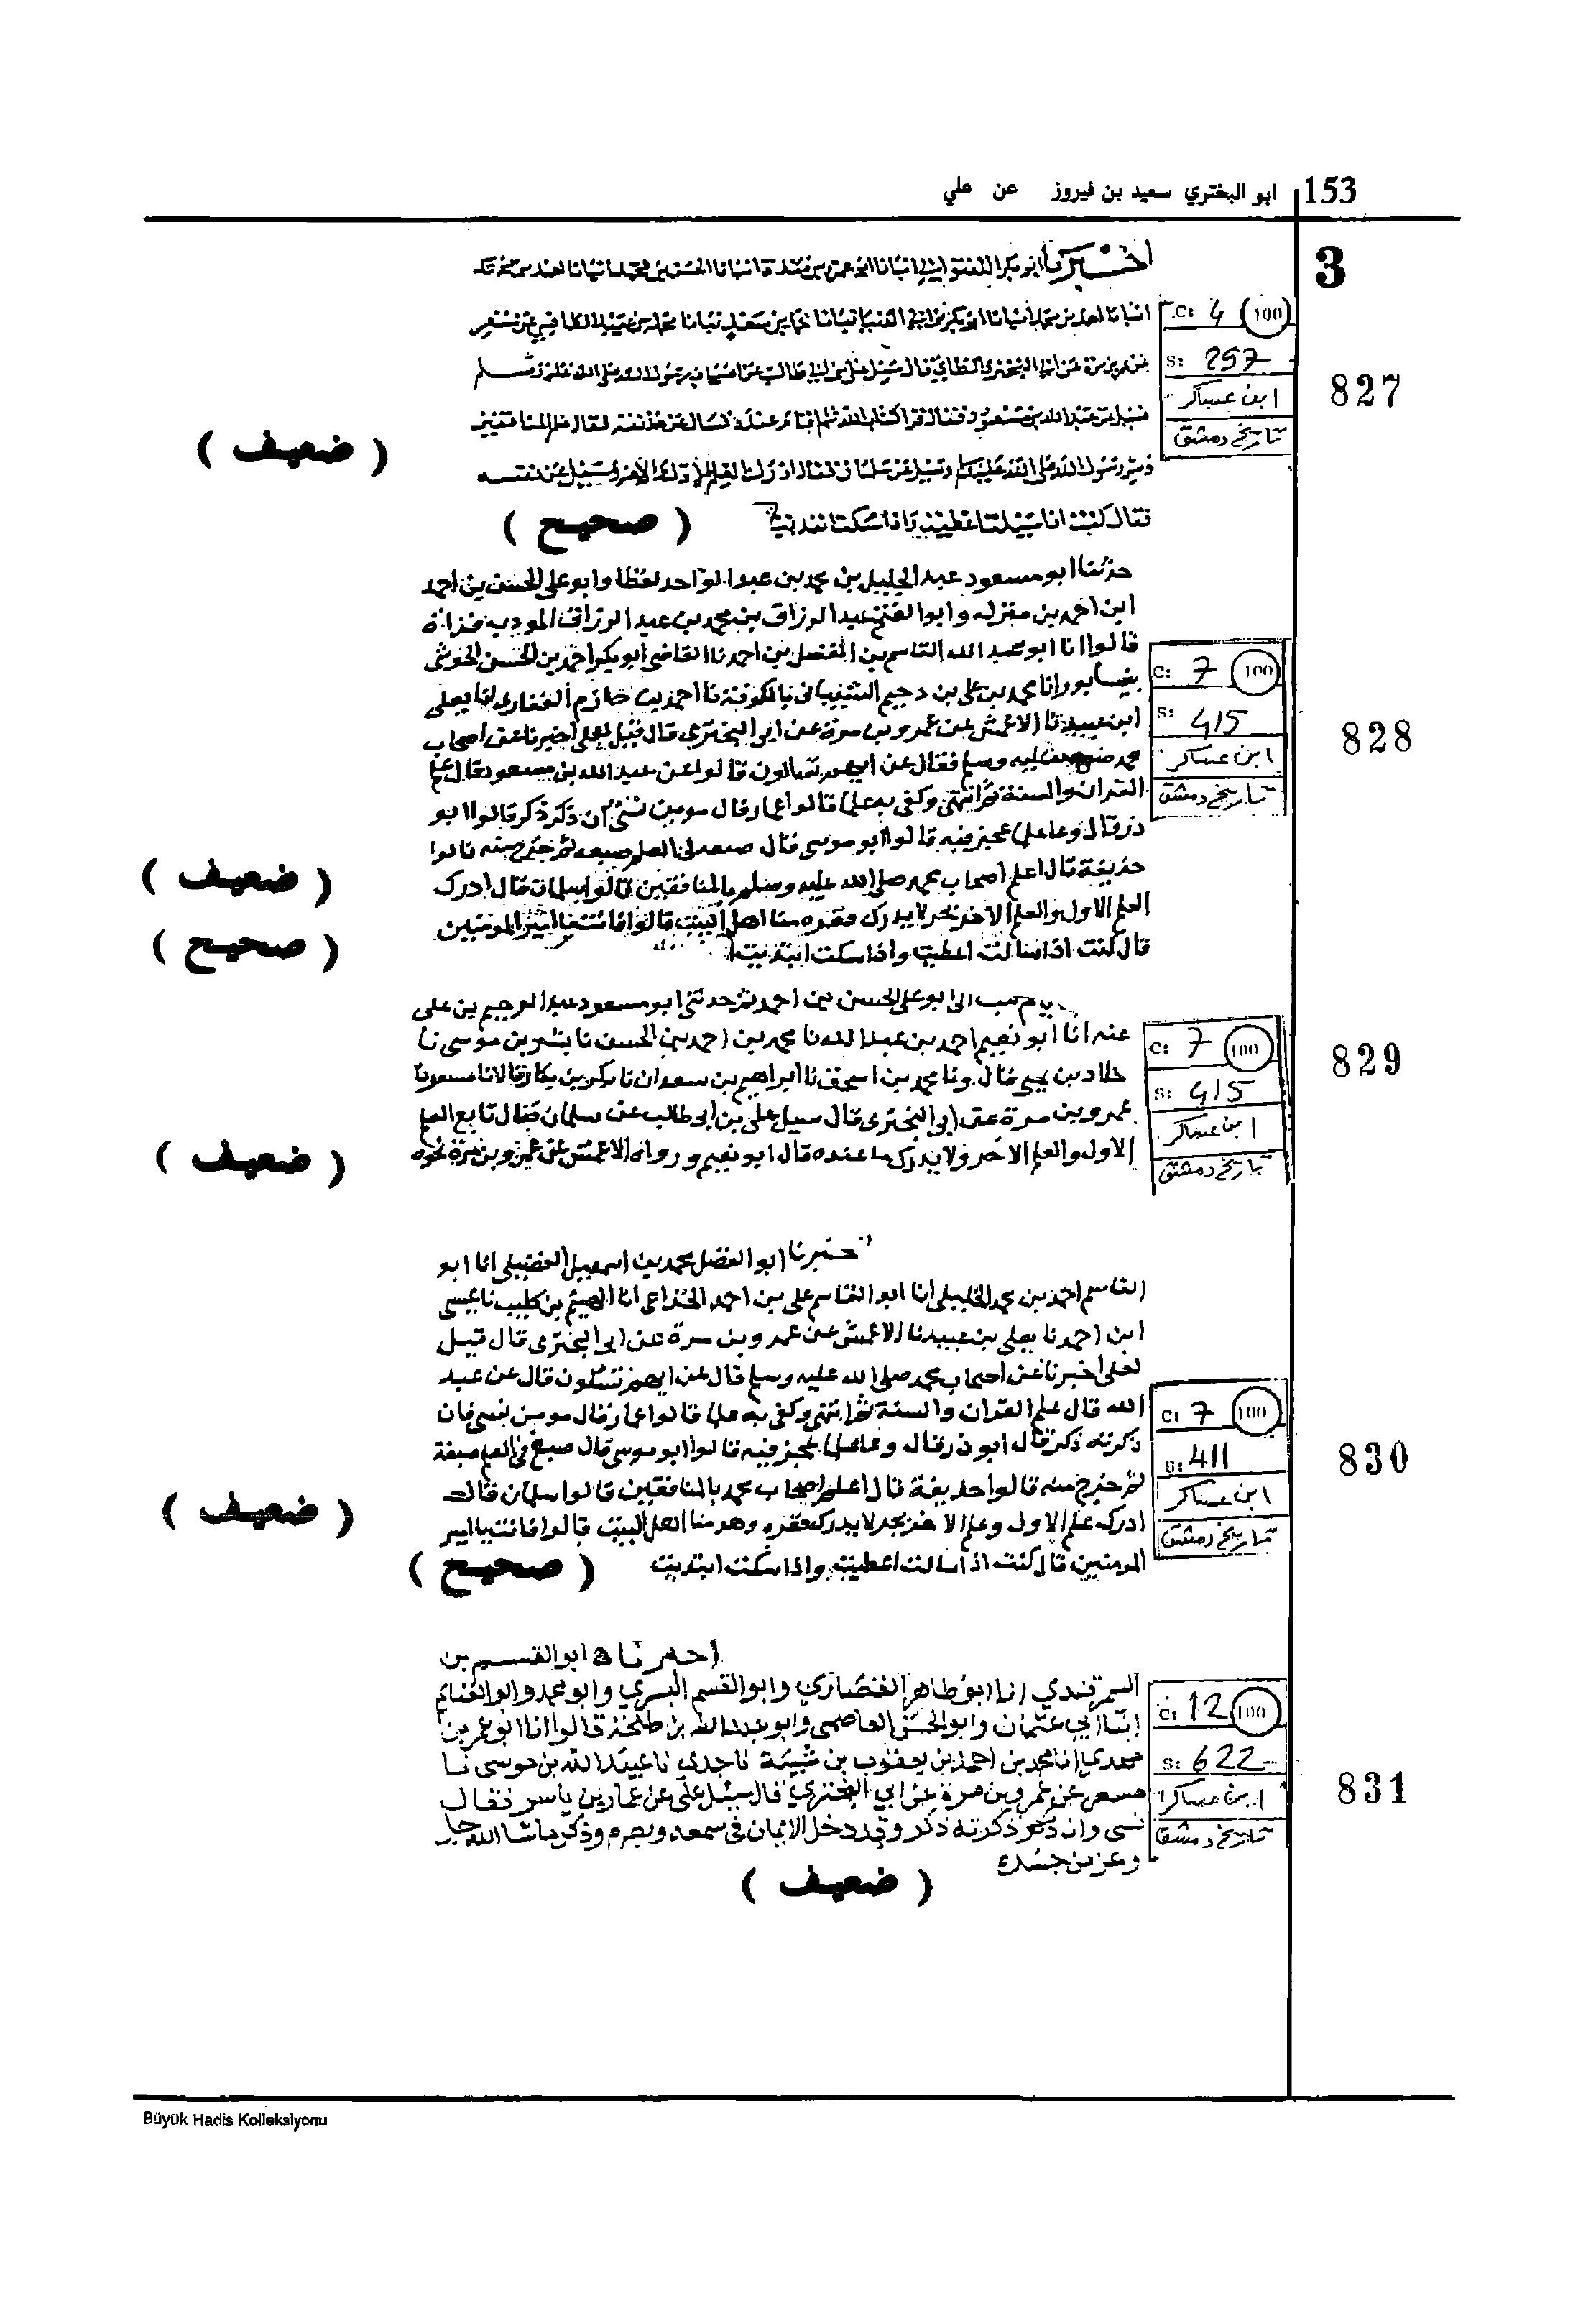 153 ابو البختري سعيد بن فيروز عن علي
3
827
C: 4 (100)
S: 297
ابن عساكر
تاريخ دمشق
اخبرنا ابو بكر انبانا انبانا الحسن بن محمد انبانا
انبانا انبانا ابو بكر بن ابي الدنيا نبانا محمد بن سعد نبانا محمد بن
عن ابي البختري الطائي قال سئل علي بن ابي طالب عن اصحاب رسول الله صلى الله عليه وسلم
فسئل عن عبد الله بن مسعود فقال قرا كتاب الله ثم
رسول الله صلى الله عليه وسلم وسئل عن سلمان فقال ادرك العلم الاخر وسئل عن نفسه
فقال كنت اذا سئلت اعطيت واذا سكت
( ضعيف )
( صحيح )
828
C: 7 (100)
S: 415
ابن عساكر
تاريخ دمشق
حدثنا ابو مسعود عبد الجليل بن محمد بن عبد الواحد لفظا وابو علي الحسن بن احمد
ابن احمد بن وابو الفتح عبد الرزاق بن محمد بن عبد الرزاق المودب
قالوا انا ابو عبد الله القاسم بن الفضل بن احمد نا القاضي ابو بكر احمد بن الحسن
بنيسابور انا محمد بن علي بن دحيم الشيباني بالكوفة نا احمد بن حازم الغفاري نا يعلى
ابن عبيد نا الاعمش عن عمرو بن مرة عن ابي البختري قال قيل لعلي اخبرنا عن اصحاب
محمد صلى الله عليه وسلم فقال عن ايهم تسالون قالوا عن عبد الله بن مسعود قال علم
القران والسنة ثم انتهى وكفى به علما قالوا عمار قال مومن نسي ان ذكر ذكر قالوا ابو
ذر قال وعا علما عجز فيه قالوا ابو موسى قال صبغ في العلم صبغه ثم خرج منه قالوا
حذيفة قال اعلم اصحاب محمد صلى الله عليه وسلم بالمنافقين قالوا سلمان قال ادرك
العلم الاول والعلم الاخر بحر لا يدرك قعره منا اهل البيت قالوا فانت يا امير المومنين
قال كنت اذا سالت اعطيت واذا سكت ابتديت
( ضعيف )
( صحيح )
829
C: 7 (100)
S: 415
ابن عساكر
تاريخ دمشق
الي ابو علي الحسن بن احمد ثم حدثني ابو مسعود عبد الرحيم بن علي
عنه انا ابو نعيم احمد بن عبد الله نا محمد بن احمد بن الحسن نا بشر بن موسى نا
خلاد بن يحيى قال ونا محمد بن اسحق نا ابراهيم بن سعدان نا بكر بن بكار قالا نا مسعر نا
عمرو بن مرة عن ابي البختري قال سيل علي بن ابي طالب عن سلمان فقال تابع العلم
الاول والعلم الاخر ولا يدرك ما عنده قال ابو نعيم ورواه الاعمش عن عمرو بن مرة نحوه
( ضعيف )
830
C: 7 (100)
S: 411
ابن عساكر
تاريخ دمشق
اخبرنا ابو الفضل محمد بن اسمعيل الفضيلي انا ابو
القاسم احمد بن محمد الخليلي انا ابو القاسم علي بن احمد الخزاعي انا الهيثم بن كليب نا عيسى
ابن احمد نا يعلى بن عبيد نا الاعمش عن عمرو بن مرة عن ابي البختري قال قيل
لعلي اخبرنا عن اصحاب محمد صلى الله عليه وسلم قال عن ايهم تسئلون قال عن عبد
الله قال علم القران والسنة ثم انتهى وكفى به علما قالوا عمار قال مومن نسي فان
ذكرته ذكر قال ابو ذر قال وعا علما عجز فيه قالوا ابو موسى قال صبغ في العلم صبغة
ثم خرج منه قالوا حذيفة قال اعلم اصحاب محمد بالمنافقين قالوا سلمان قال
ادرك علم الاول وعلم الاخر بحر لا يدرك قعره وهو منا اهل البيت قالوا فانت يا امير
المومنين قال كنت اذا سالت اعطيت واذا سكت ابتديت
( ضعيف )
( صحيح )
831
C: 12 (100)
S: 622
ابن عساكر
تاريخ دمشق
اخبرناه ابو القسم بن
السمرقندي انا ابو طاهر القصاري وابو القسم البسري وابو محمد وابو الغنائم
ابنا ابي عثمان وابو الحسن العاصمي وابو عبد الله بن طلحة قالوا انا ابو عمر بن
مهدي انا محمد بن احمد بن يعقوب بن شيبة نا جدي نا عبيد الله بن موسى نا
مسعر عن عمرو بن مرة عن ابي البختري قال سئل علي عن عمار بن ياسر فقال
نسي وان ذكرته ذكر وقد دخل الايمان في سمعه وبصره وذكر ما شا الله جل
وعز من جسده
( ضعيف )
Büyük Hadis Kolleksiyonu